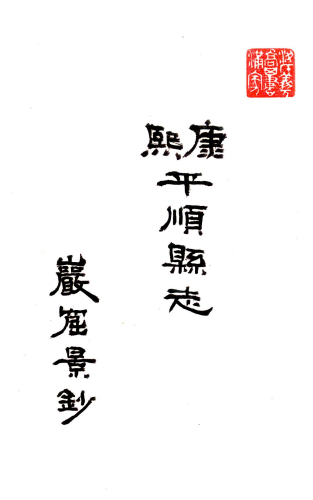 康熙平順縣志
巖窟景鈔